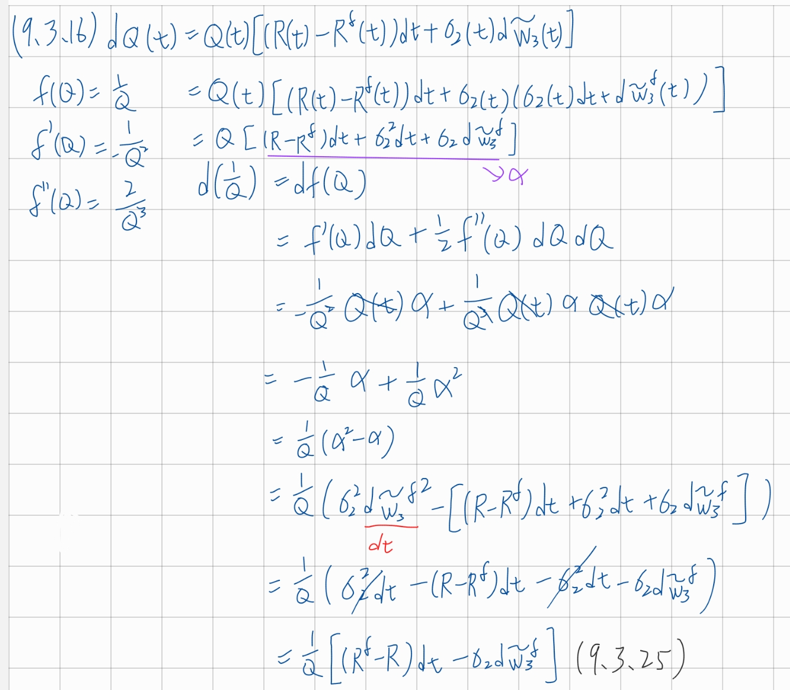 (9.3.16) dQ(t) = Q(t)[(R(t) - R^f(t))dt + σ₂(t)dW̃₃(t)]
f(Q) = 1/Q = Q(t)[(R(t) - R^f(t))dt + σ₂(t)(σ₂(t)dt + dW̃₃^f(t))]
f'(Q) = -1/Q² = Q[(R-R^f)dt + σ₂²dt + σ₂dW̃₃^f]
→ α
f''(Q) = 2/Q³ d(1/Q) = df(Q)
= f'(Q)dQ + ½f''(Q)dQdQ
= -1/Q² Q(t)α + 1/Q³ Q(t)αQ(t)α
= -1/Q α + 1/Q α²
= 1/Q (α²-α)
= 1/Q (σ₂²dW̃₃^f² - [(R-R^f)dt + σ₂²dt + σ₂dW̃₃^f])
dt
= 1/Q (σ₂²dt - (R-R^f)dt - σ₂²dt - σ₂dW̃₃^f)
= 1/Q [(R^f-R)dt - σ₂dW̃₃^f] (9.3.25)